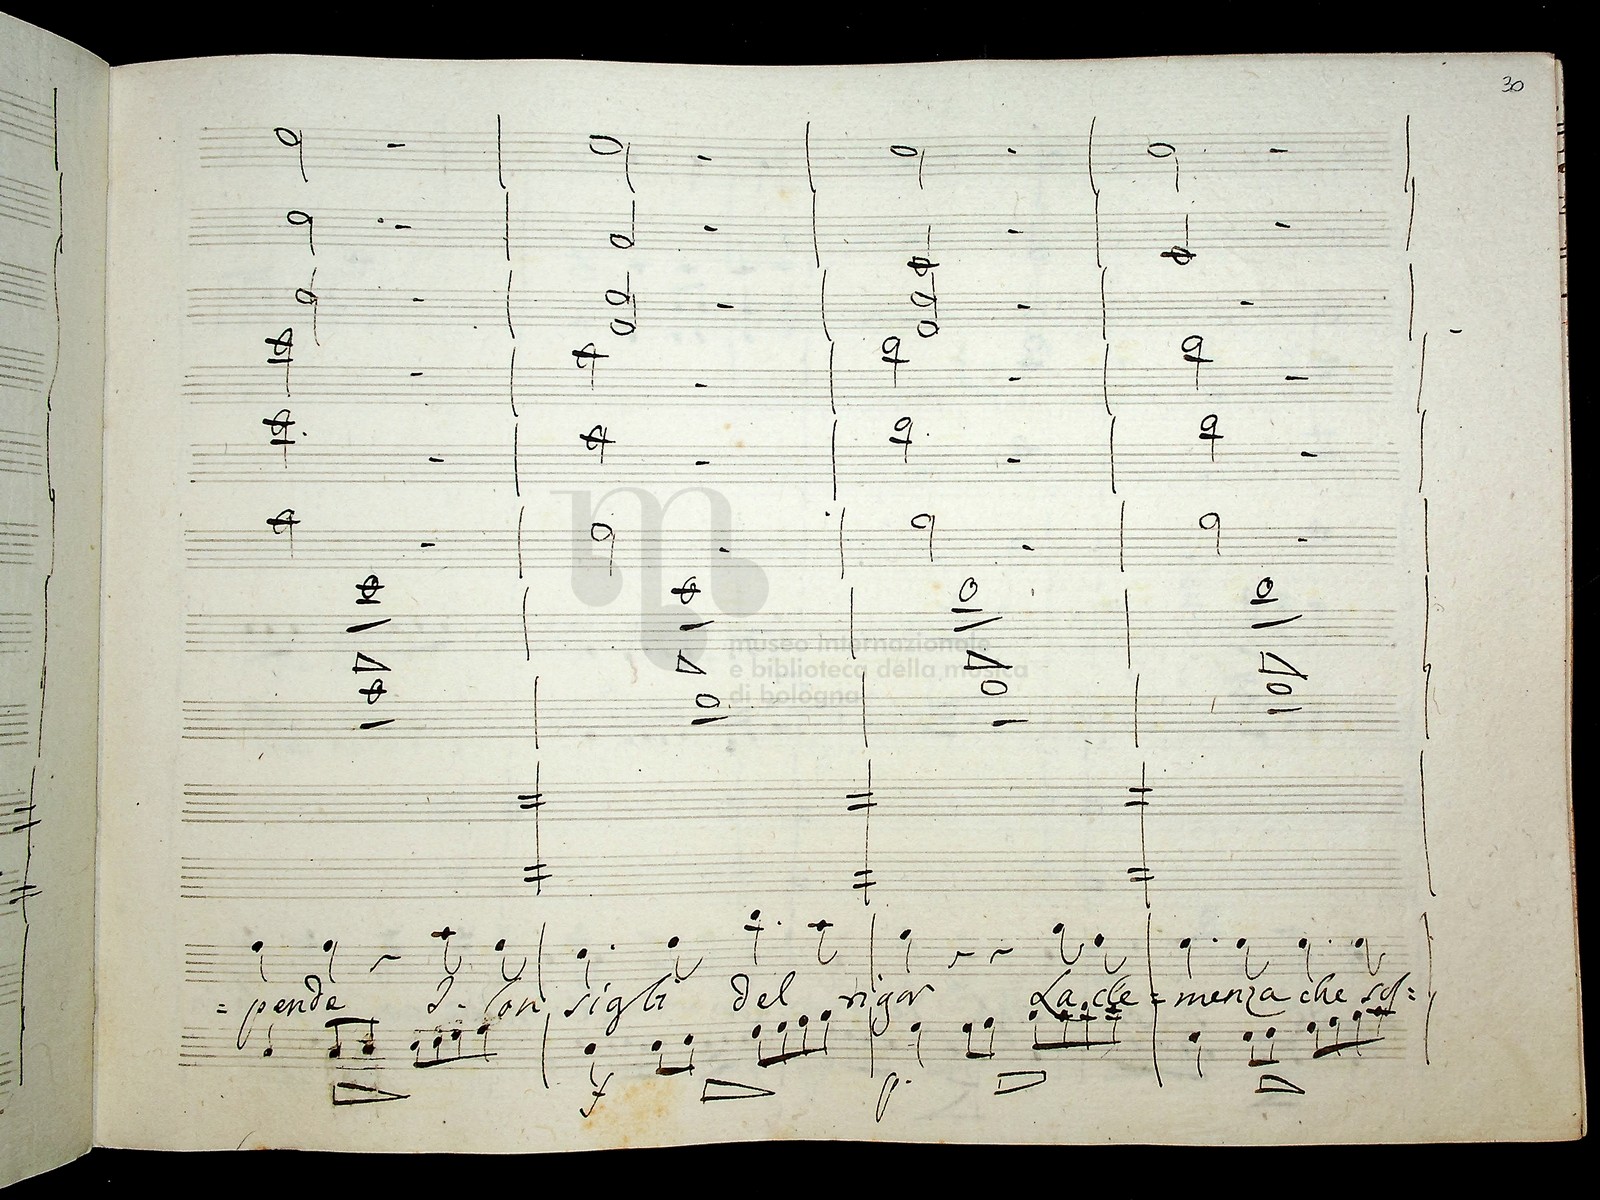 30
museo internazionale
e biblioteca della musica
di bologna
= pende I - Con sigli del rigor La cle = menza che sol =
f p.